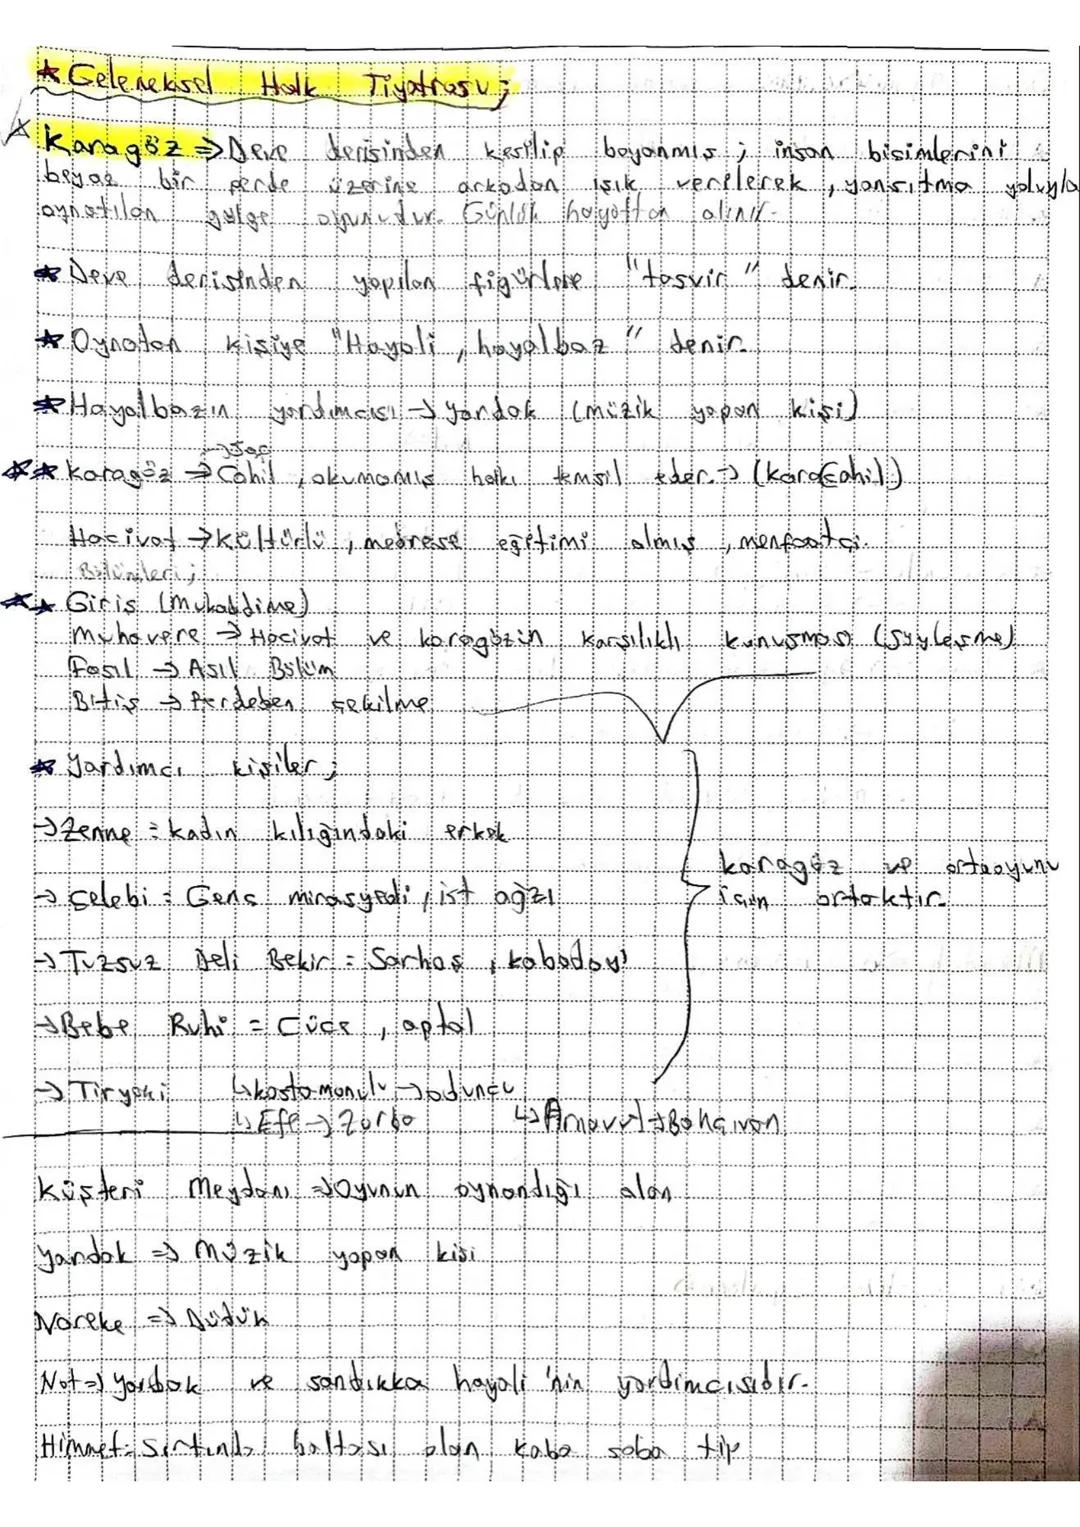 * Geleneksel Halk Tiyatrosu ;
* Karagöz => Deve derisinden kesilip boyanmış ; insan biçimlerini
beyaz bir perde üzerine arkadan ışık verilerek , yansıtma yoluyla
oynatılan gölge oyunudur. Günlük hayattan alınır.
* Deve derisinden yapılan figürlere "tasvir" denir.
* Oynatan kişiye "Hayali , hayalbaz" denir.
* Hayalbazın yardımcısı → yardak (müzik yapan kişi)
* * karagöz → Cahil , okumamış halkı temsil eder. → (karaCahil)
Hacivat → kültürlü , medrese eğitimi almış , menfaatçi.
Bölümleri ;
* * Giriş (Mukaddime)
Muhavere → Hacivat ve karagözün karşılıklı konuşması (söyleşme)
Fasıl → Asıl Bölüm
Bitiş → Perdeden çekilme
* Yardımcı kişiler ;
→ Zenne = kadın kılığındaki erkek
→ Çelebi = Genç mirasyedi , ist ağzı
→ Tuzsuz Deli Bekir = Sarhoş , kabadayı
karagöz ve ortaoyunu
için ortaktır
→ Bebe Ruhi = Cüce , aptal
→ Tiryaki ↳ kastamonulu → oduncu
↳ Efe → Zorba ↳ Arnavut → Bahçıvan
Küşteri Meydanı => Oyunun oynandığı alan
Yardak => Müzik yapan kişi
Nareke => Düdük
Not => yardak ve sandıkka hayali'nin yardımcısıdır.
Himmet = Sırtında baltası olan kaba saba tip